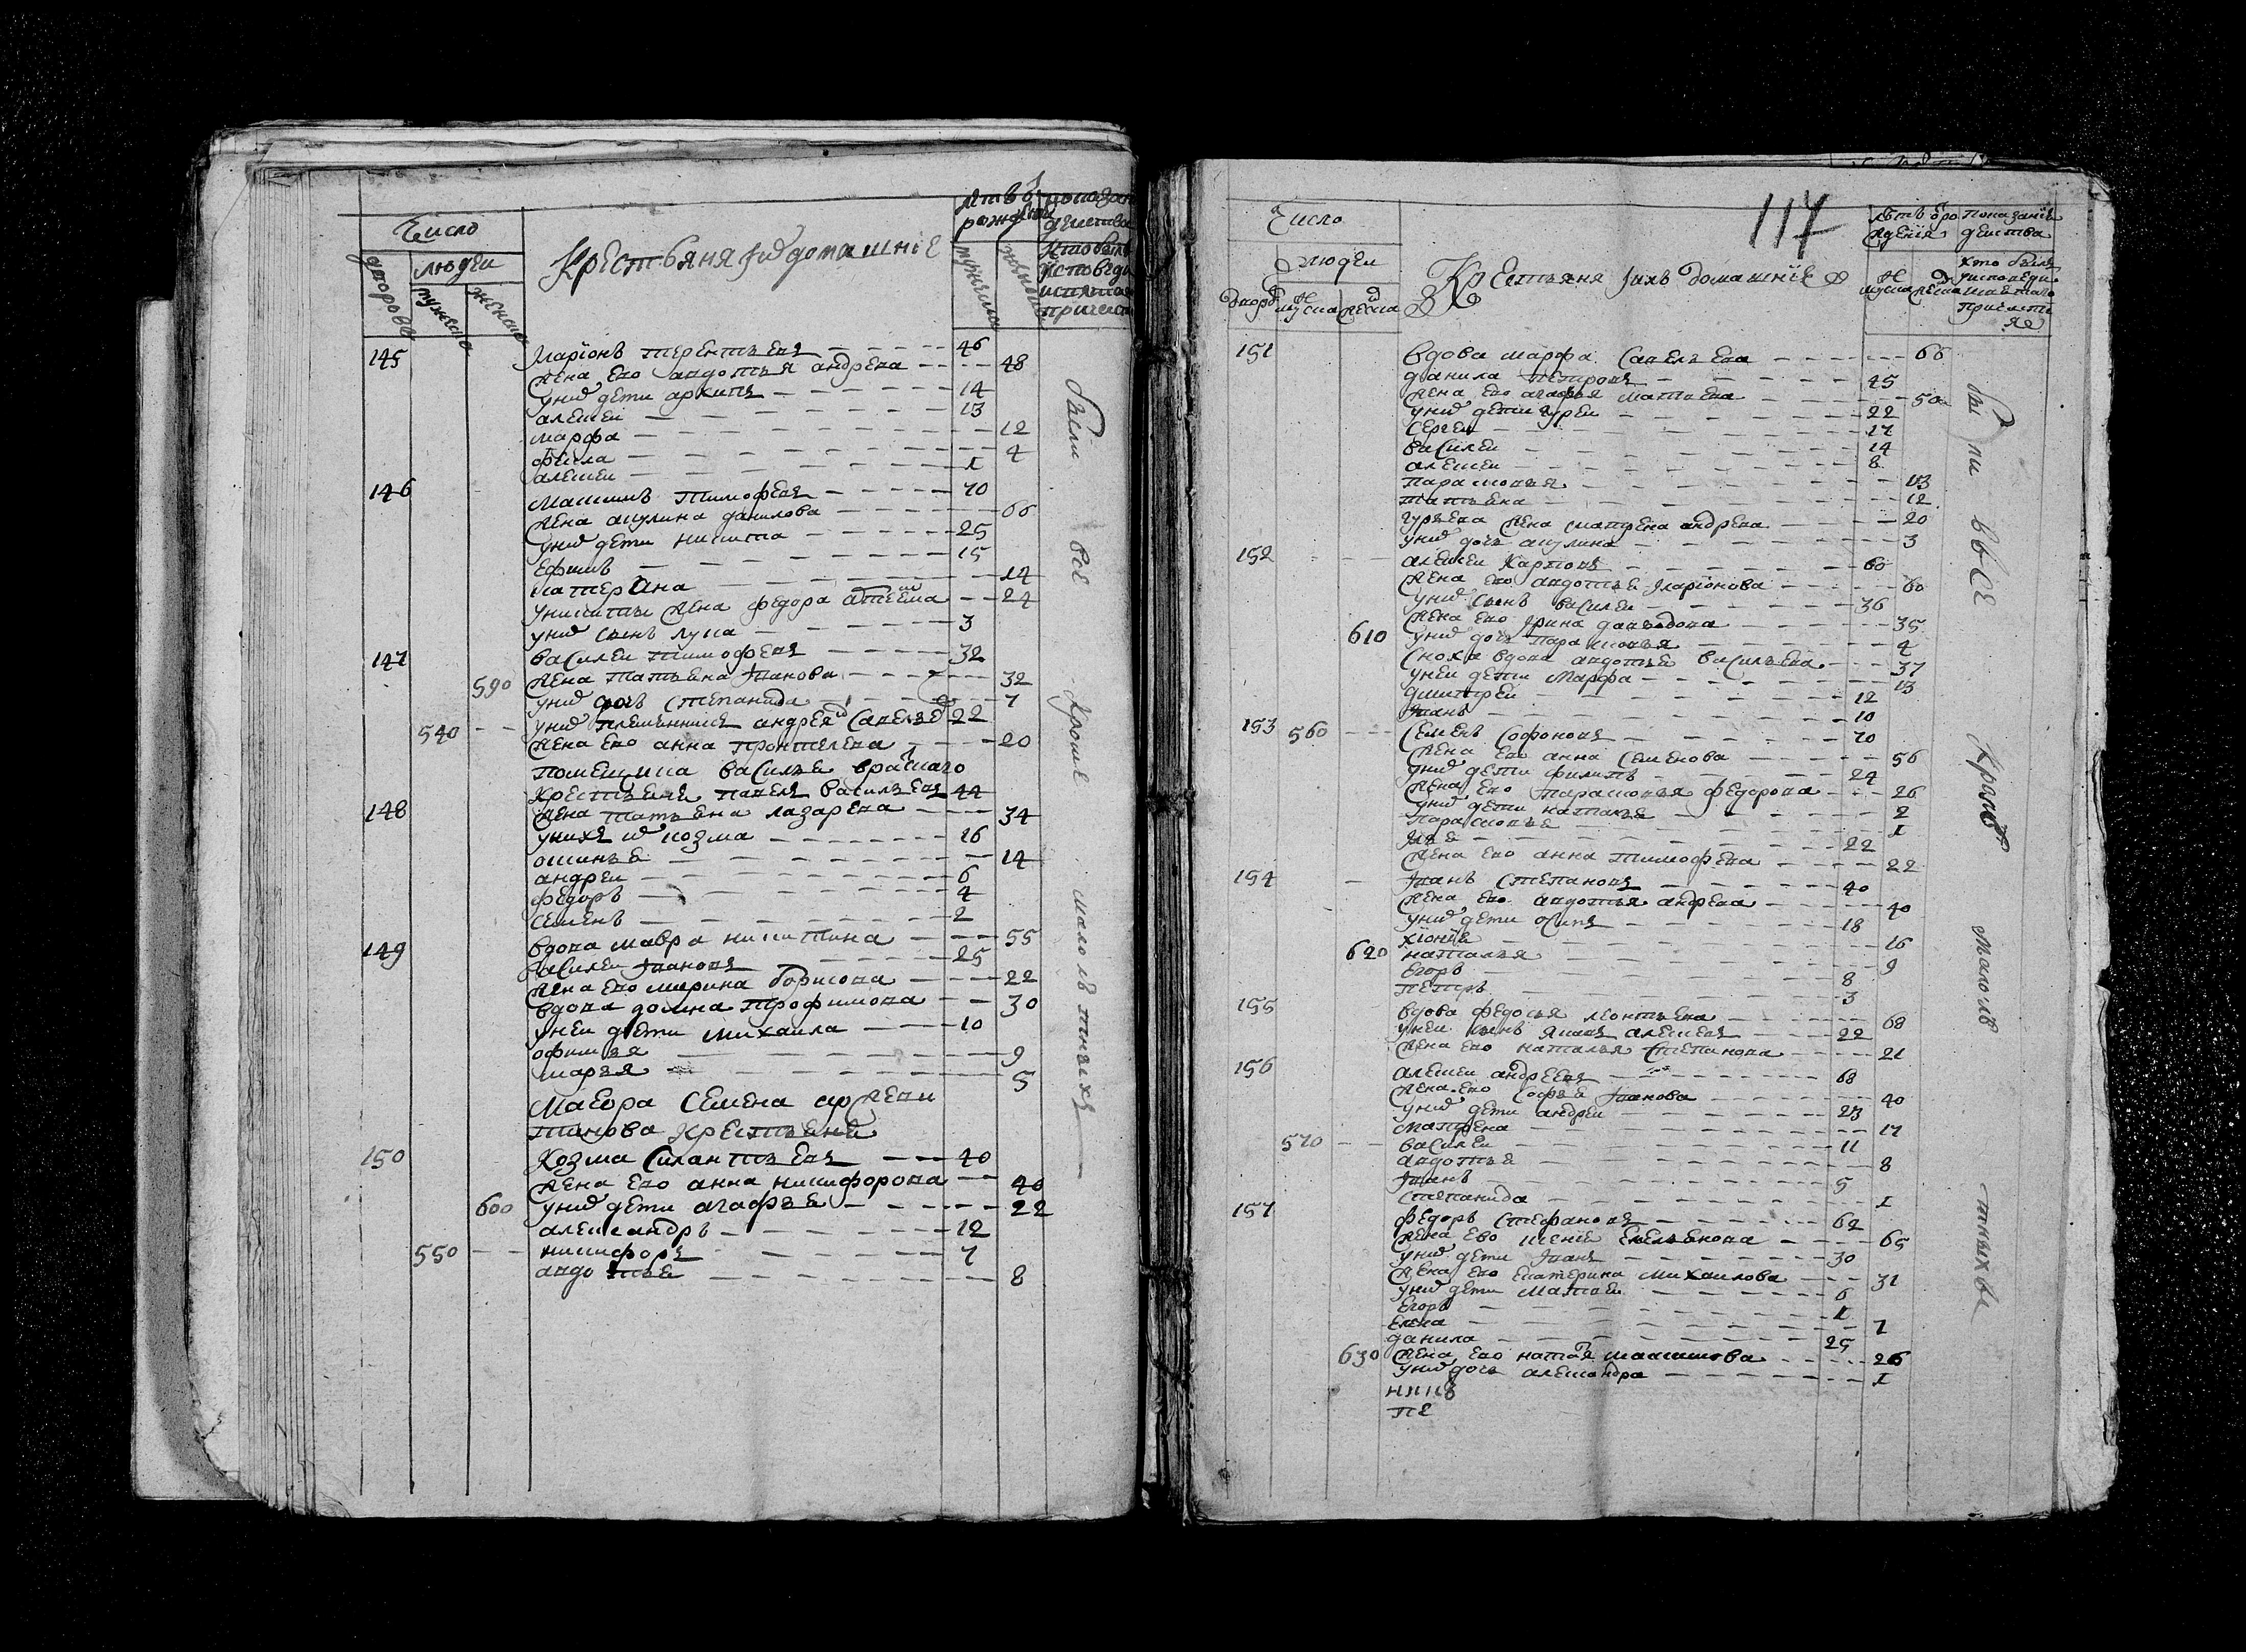 Число
дворовъ
людеи
мужеска
женска
Крестьяня и домашние
лѣтъ о
рожде
мужеска
женска
показан
деиства
кто былъ
исповеди
145 Ларионъ терентьевъ 46
жена ево авдотья андрева 48
у них дети архипъ 14
алексеи 13
марфа 12
фекла 4
алексеи 1
146 Максимъ тимофевъ 70
жена акулина данилова 66
у них дети никита 25
Ефимъ 15
катерина 14
у никиты жена федора 24
у них сынъ лука 3
147 василеи тимофевъ 32
590 жена татьяна иванова 32
у них дочь степанида 7
540 у них племянникъ андреи савельев 22
жена ево анна 20
помещика василья
крестьяне павелъ васильевъ 44
148 жена татьяна лазарева 34
у нихъ козма 16
аксинья 14
андреи 6
федоръ 4
семенъ 2
вдова мавра никитина 55
149 василеи ивановъ 25
жена ево марина борисова 22
вдова домна трофимова 30
у неи дети михаила 10
офимья 9
марья 5
маеора семена
крестьяне
150 Козма силантьевъ 40
жена ево анна никифорова 40
600 у них дети агафья 22
александръ 12
550 никифоръ 7
авдотья 8
были все кроме малолѣтныхъ
117
Число
людеи
дворо
муска
женска
Крестьяня и ихъ домашние
лѣтъ о ро
ждения
муска
женска
показание
деиства
кто былъ
у исповеди
151 вдова марфа савельева 66
данила петровъ 45
жена ево агафья матвева 50
у них дети гуреи 22
сергеи 17
василеи 14
алексеи 8
парасковья 13
татьяна 12
гурьева жена матрена андрева 20
у них дочь акулина 3
152 алексеи карповъ 60
жена ево авдотья ларионова 60
у них сынъ василеи 36
жена ево ирина давыдова 35
610 у них дочь парасковья 4
сноха вдова авдотья васильева 37
у неи дети марфа 13
дмитреи 12
иванъ 10
153 560 семенъ софоновъ 70
жена ево анна семенова 56
у них дети филипъ 24
жена ево парасковья федорова 26
у них дети наталья 2
парасковья 1
яков 22
жена ево анна тимофева 22
154 иванъ степановъ 40
жена ево авдотья андрева 40
у них дети осипъ 18
хиония 16
620 наталья 9
егоръ 8
петръ 3
155 вдова федосья леонтьева 68
у неи сынъ алексевъ 22
жена ево наталья степанова 21
156 алексеи андреевъ 68
жена ево софья иванова 40
у них дети андреи 23
матрена 17
570 василеи 11
авдотья 8
иванъ 5
степанида 1
157 федоръ стефановъ 62
жена ево ксения емельянова 65
у них дети иванъ 30
жена ево екатерина михаилова 31
у них дети матвеи 6
егоръ 1
елена 7
данила 25
630 жена ево максимова 26
у них дочь александра 1
были все кромѣ малолѣтныхъ